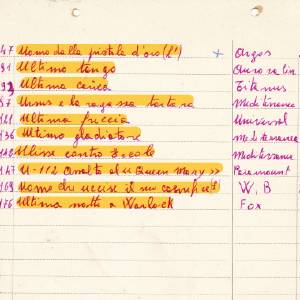 47 Uomo dalla pistola d'oro (l') + Argos
91 Ultimo tango
92 Ultima carica Titanus
87 Ursus e la ragazza tartara Mediterranea
Ultima freccia Universal
136 Ultimo gladiatore Mediterranea
Ulisse contro Ercole Mediterranea
147 U-112 assalto al "Queen Mary" Paramount
169 Uomo che uccise il suo carnefice (l') W. B
176 Ultima notte a Warlock Fox